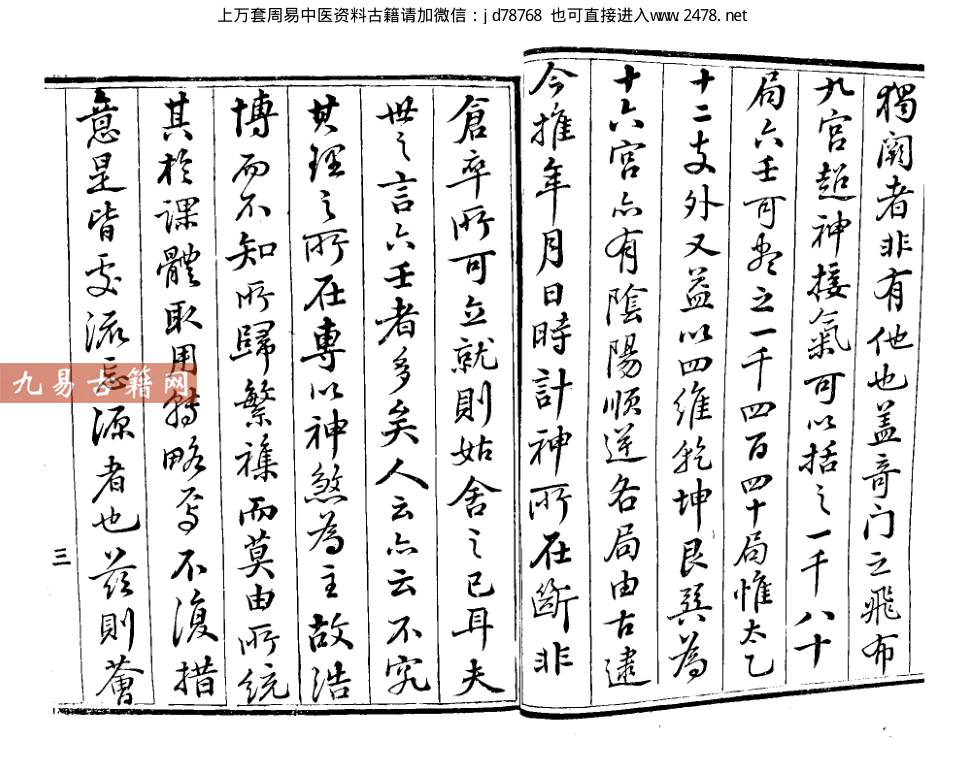 上万套周易中医资料古籍请加微信：jd78768 也可直接进入www.2478.net
獨闕者非有他也盖奇门之飛布
九宫超神接氣可以括之一千八十
局六壬可盡之一千四百四十局惟太乙
十二支外又益以四維乾坤艮巽為
十六宫亦有陰陽順逆各局由古逮
今推年月日時計神所在斷非
倉卒所可立就則姑舍之已耳夫
世之言六壬者多矣人云亦云不究
其理之所在專以神煞為主故浩
博而不知所歸繁襍而莫由所統
其於課體取用轉略焉不復措
意是皆委流忘源者也兹則薈
三
九易古籍网